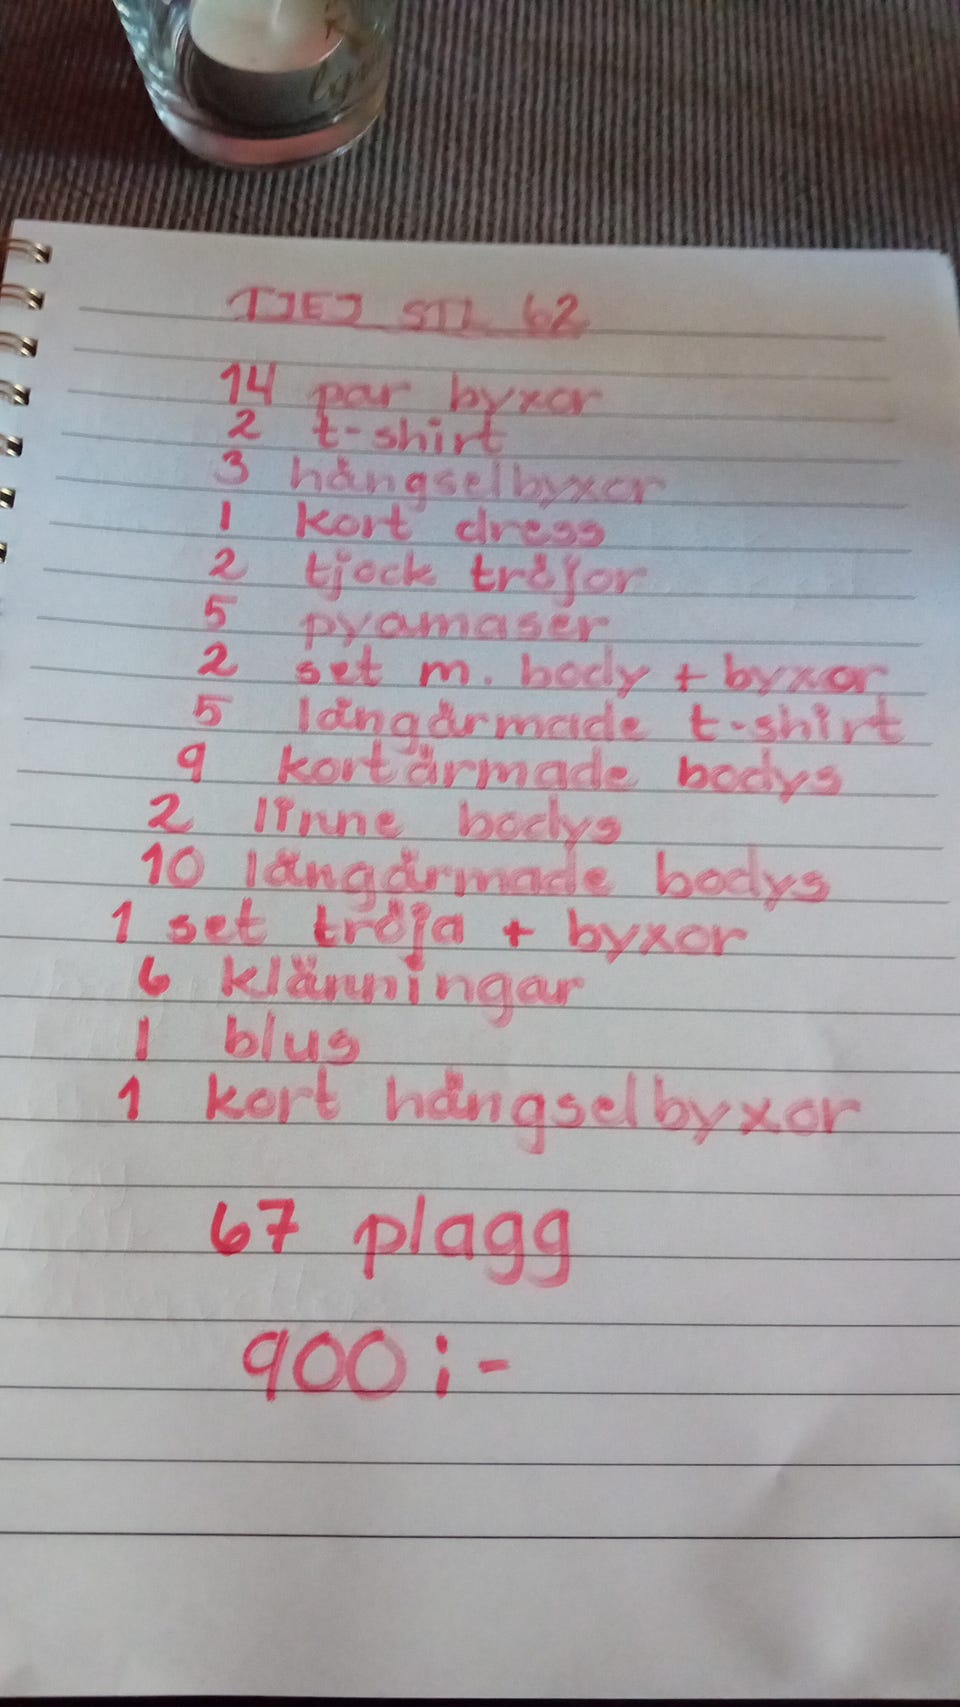 TJEJ STL 62
14 par byxor
2 t-shirt
3 hängselbyxor
1 kort dress
2 tjock tröjor
5 pyamaser
2 set m. body + byxor
5 långärmade t-shirt
9 kortärmade bodys
2 linne bodys
10 långärmade bodys
1 set tröja + byxor
6 klänningar
1 blus
1 kort hängselbyxor
67 plagg
900:-